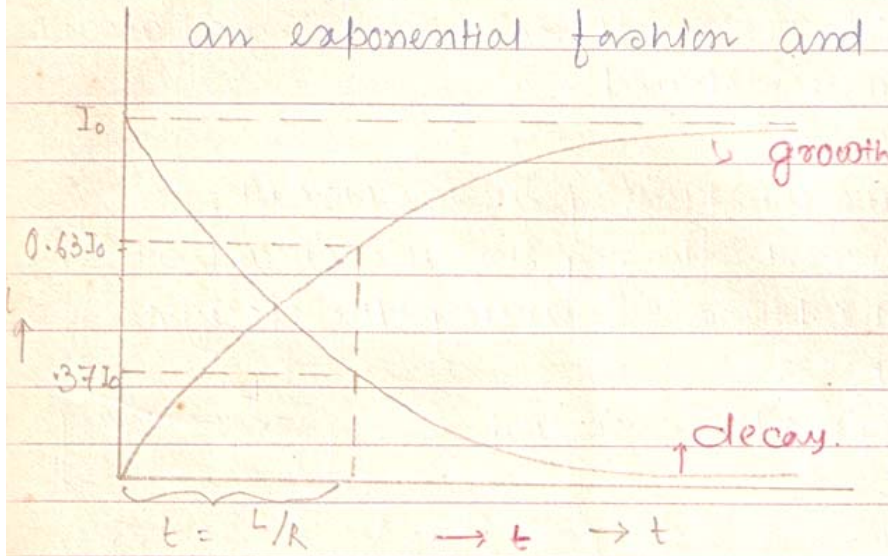 an exponential fashion and
I₀
↳ growth
0.63I₀
i
↑
.37I₀
↑ decay.
t = L/R → t → t